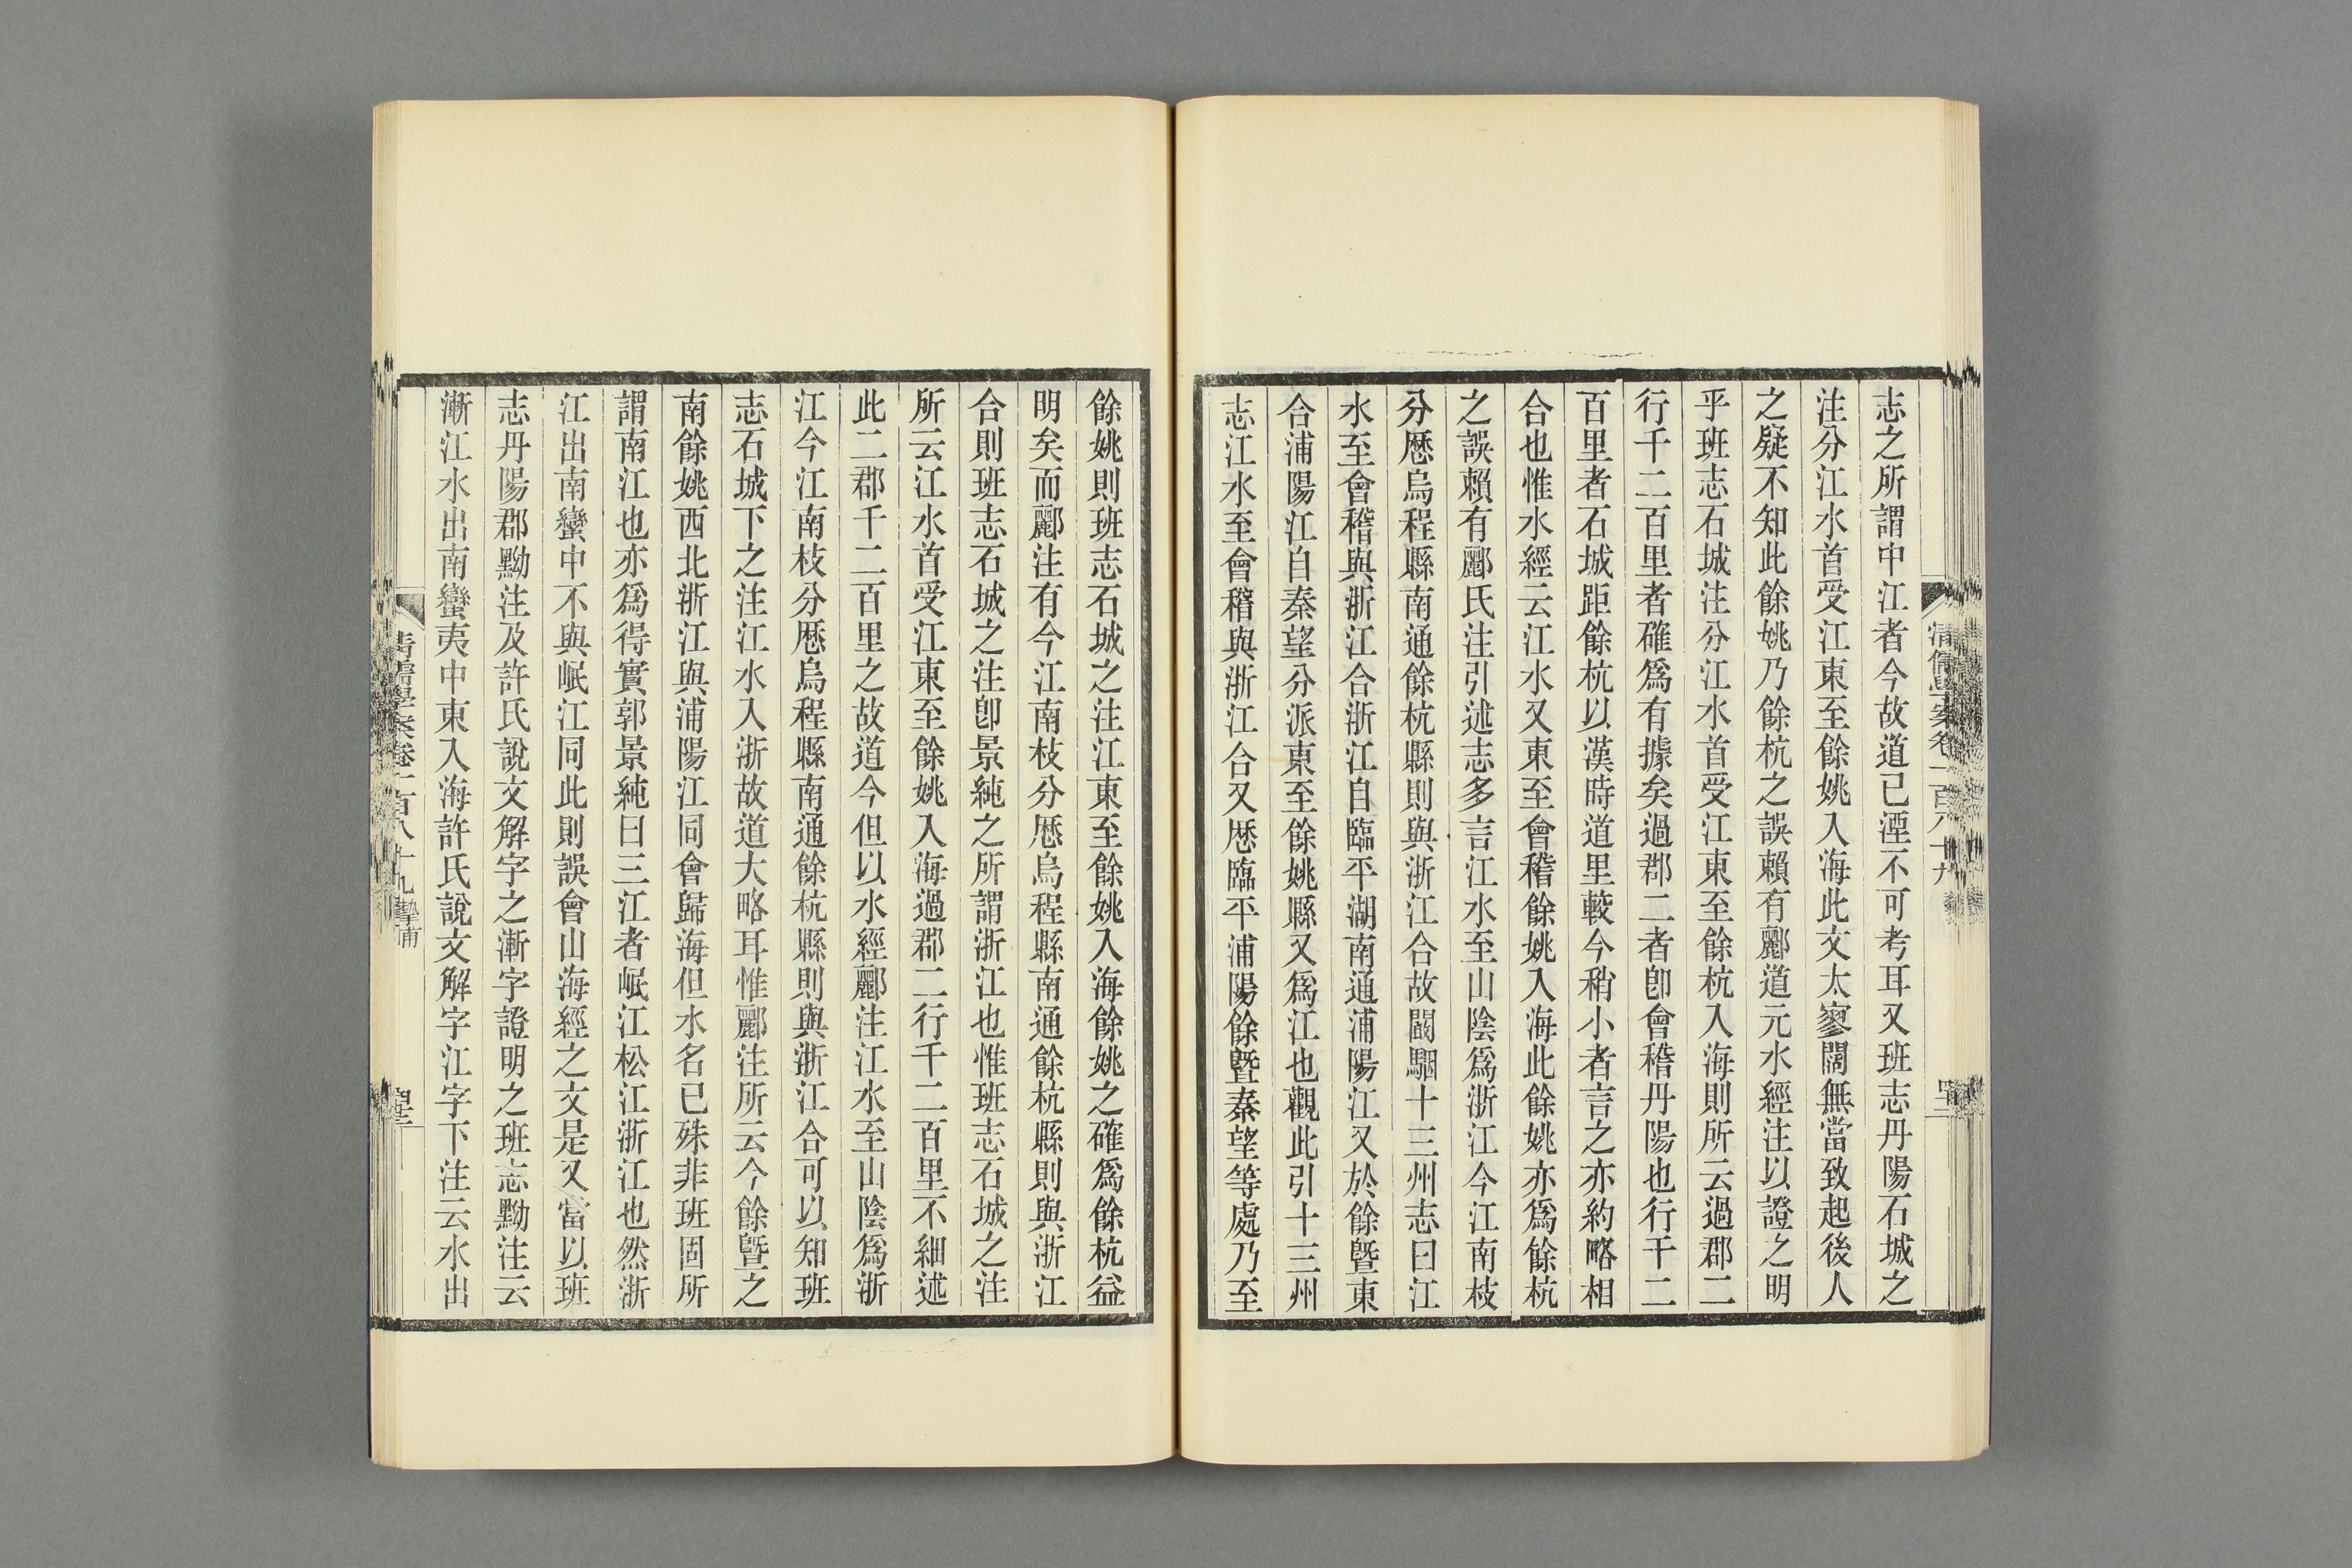 志之所謂中江者今故道已湮不可考耳又班志丹陽石城之
注分江水首受江東至餘姚入海此文太寥闊無當致起後人
之疑不知此餘姚乃餘杭之誤賴有酈道元水經注以證之明
乎班志石城注分江水首受江東至餘杭入海則所云過郡二
行千二百里者確爲有據矣過郡二者卽會稽丹陽也行千二
百里者石城距餘杭以漢時道里較今稍小者言之亦約略相
合也惟水經云江水又東至會稽餘姚入海此餘姚亦爲餘杭
之誤賴有酈氏注引述志多言江水至山陰爲浙江今江南枝
分歷烏程縣南通餘杭縣則與浙江合故闞駰十三州志曰江
水至會稽與浙江合浙江自臨平湖南通浦陽江又於餘曁東
合浦陽江自秦望分派東至餘姚縣又爲江也觀此引十三州
志江水至會稽與浙江合又歷臨平浦陽餘曁秦望等處乃至
餘姚則班志石城之注江東至餘姚入海餘姚之確爲餘杭益
明矣而酈注有今江南枝分歷烏程縣南通餘杭縣則與浙江
合則班志石城之注卽景純之所謂浙江也惟班志石城之注
所云江水首受江東至餘姚入海過郡二行千二百里不細述
此二郡千二百里之故道今但以水經酈注江水至山陰爲浙
江今江南枝分歷烏程縣南通餘杭縣則與浙江合可以知班
志石城下之注江水入浙故道大略耳惟酈注所云今餘曁之
南餘姚西北浙江與浦陽江同會歸海但水名已殊非班固所
謂南江也亦爲得實郭景純曰三江者岷江松江浙江也然浙
江出南蠻中不與岷江同此則誤會山海經之文是又當以班
志丹陽郡黝注及許氏說文解字之漸字證明之班志黝注云
漸江水出南蠻夷中東入海許氏說文解字江字下注云水出
清儒學案卷一百八十九